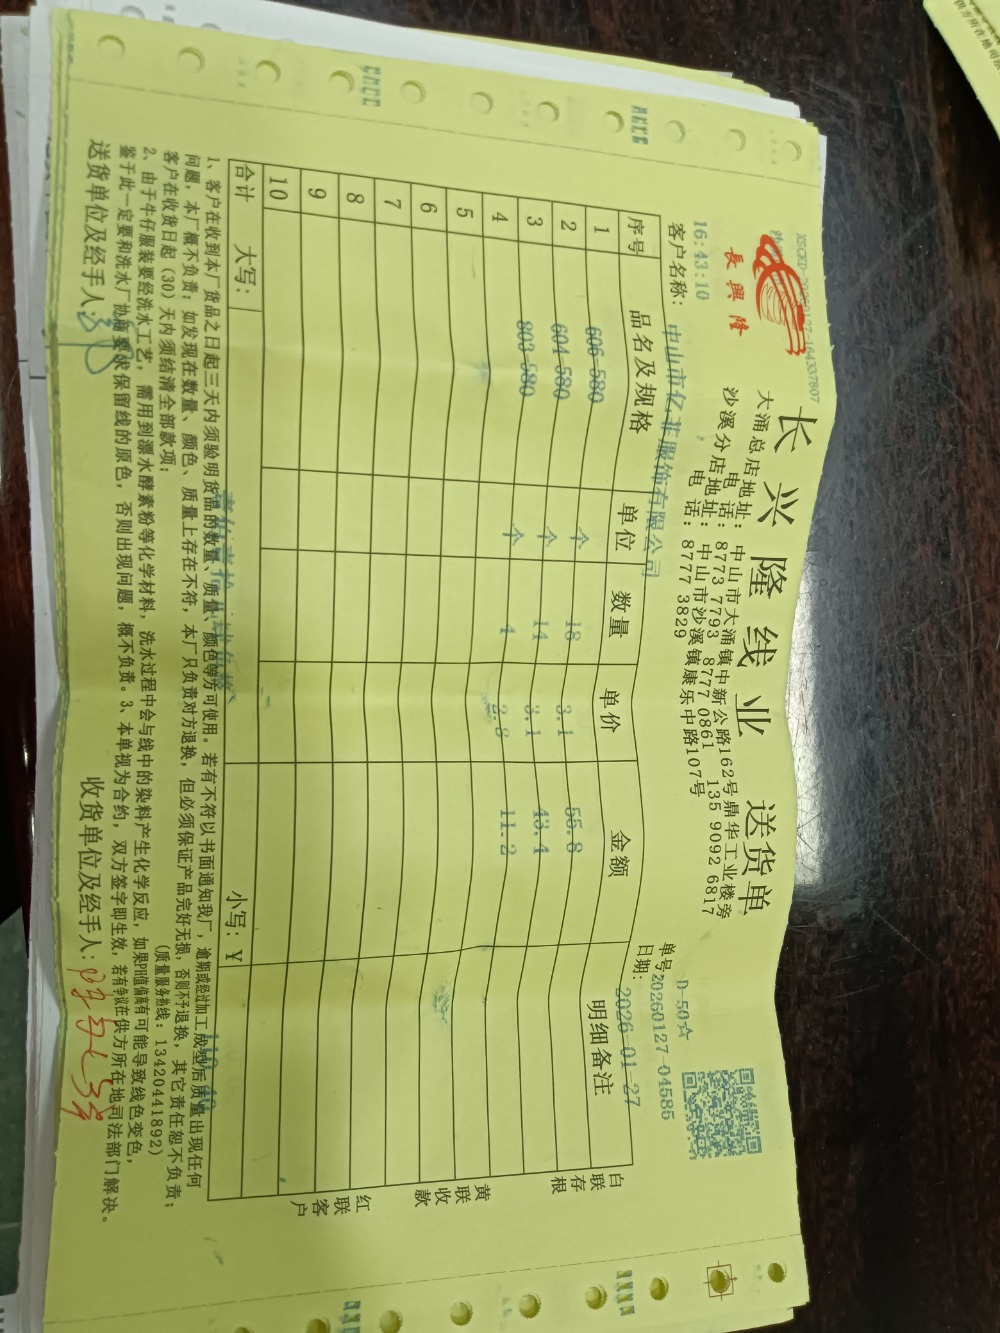 長興隆
长兴隆线业 送货单
大涌总店地址：中山市大涌镇中新公路162号鼎华工业楼旁
电 话：8773 7793 8777 0861 135 9092 6817
沙溪分店地址：中山市沙溪镇康乐中路107号
电 话：8777 3829
D-50☆
单号：20260127-04585
16:43:10
客户名称：中山市亿菲服饰有限公司
日期：2026-01-27
序号 品名及规格 单位 数量 单价 金额 明细备注
1 606-580 个 18 3.1 55.8
2 604-580 个 14 3.1 43.4
3 803-580 个 4 2.8 11.2
4
5
6
7
8
9
10
合计 大写： 小写：￥ 110.40
白联存根
黄联收款
红联客户
1、客户在收到本厂货品之日起三天内须验明货品的数量、质量、颜色等方可使用。若有不符以书面通知我厂，逾期或经过加工成型后质量出现任何
问题，本厂概不负责；如发现在数量、颜色、质量上存在不符，本厂只负责对方退换，但必须保证产品完好无损，否则不予退换，其它责任恕不负责；
客户在收货日起（30）天内须结清全部款项； （质量服务热线：13420441892）
2、由于牛仔服装要经洗水工艺，需用到漂水酵素粉等化学材料，洗水过程中会与线中的染料产生化学反应，如果PH值偏高有可能导致线色变色，
鉴于此一定要和洗水厂协商要求保留线的原色，否则出现问题，概不负责。3、本单视为合约，双方签字即生效，若有争议在供方所在地司法部门解决。
送货单位及经手人： 收货单位及经手人：